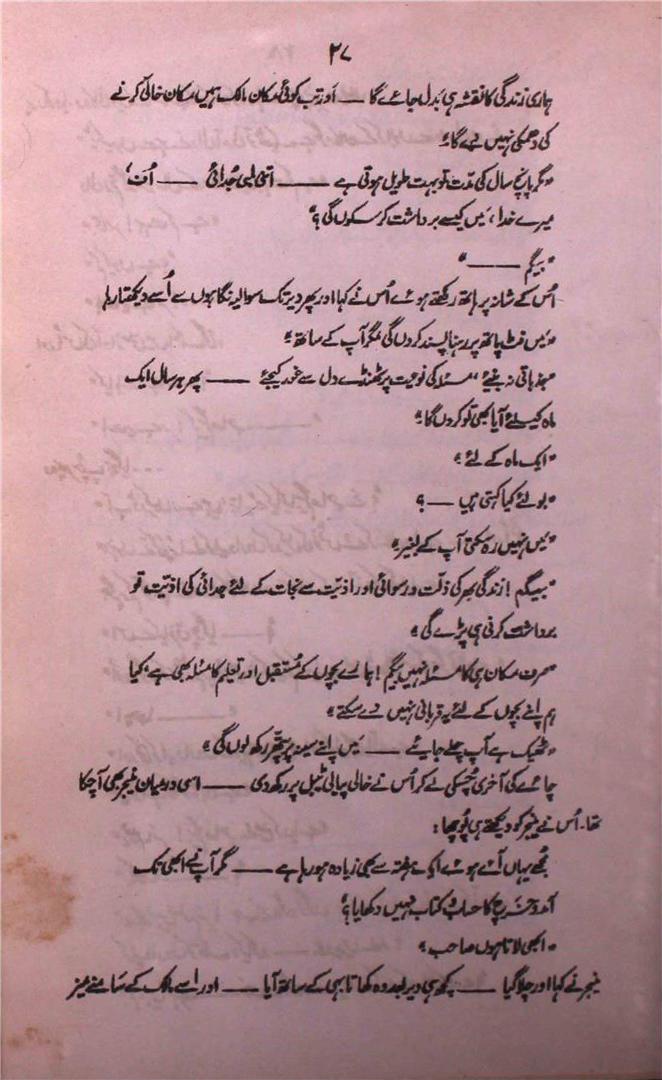 ۲۷
ہماری زندگی کا نقشہ ہی بدل جائے گا — اور تب کوئی مکان مالک ہمیں مکان خالی کرنے
کی دھمکی نہیں دے گا۔"
"مگر پانچ سال کی مدّت تو بہت طویل ہوتی ہے —— اتنی لمبی جُدائی —— اُف،
میرے خدا، میں کیسے برداشت کر سکوں گی؟"
"بیگم ——"
اُس کے شانہ پر ہاتھ رکھتے ہوئے اُس نے کہا اور پھر دیر تک سوالیہ نگاہوں سے اُسے دیکھتا رہا
"میں فٹ پاتھ پر رہنا پسند کروں گی مگر آپ کے ساتھ۔"
"جذباتی نہ بنیئے، مسئلہ کی نوعیت پر ٹھنڈے دل سے غور کیجئے —— پھر ہر سال ایک
ماہ کیلئے آیا بھی تو کروں گا۔"
"ایک ماہ کے لئے۔"
"بولئے کیا کہتی ہیں —؟
"میں نہیں رہ سکتی آپ کے بغیر۔"
"بیگم! زندگی بھر کی ذلّت و رسوائی اور اذیّت سے نجات کے لئے جدائی کی اذیّت تو
برداشت کرنی ہی پڑے گی۔"
"صرف مکان ہی کا مسئلہ نہیں بیگم! ہمارے بچوں کے مُستقبل اور تعلیم کا مسئلہ بھی ہے، کیا
ہم اپنے بچوں کے لئے یہ قربانی نہیں دے سکتے۔"
"ٹھیک ہے آپ چلے جایئے —— میں اپنے سینہ پر پتّھر رکھ لوں گی۔"
چائے کی آخری چُسکی لے کر اُس نے خالی پیالی ٹیبل پر رکھ دی —— اسی درمیان منیجر بھی آچکا
تھا۔ اُس نے منیجر کو دیکھتے ہی پُوچھا:
مجھے یہاں آئے ہوئے ایک ہفتہ سے بھی زیادہ ہو رہا ہے —— مگر آپ نے ابھی تک
آمد و خرچ کا حساب کتاب نہیں دکھایا؟"
"ابھی لاتا ہوں صاحب۔"
منیجر نے کہا اور چلا گیا —— کچھ ہی دیر بعد وہ کھاتا بہی کے ساتھ آیا —— اور اسے مالک کے سامنے میز